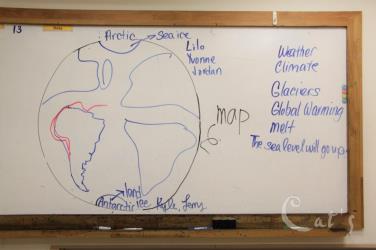 13
Arctic → Sea ice
Lilo
Yvonne
Jordan
Weather
Climate
Glaciers
Global Warming
melt
The sea level will go up
map
land
Antarctic Ice
Kyle, Jerry
Cat's